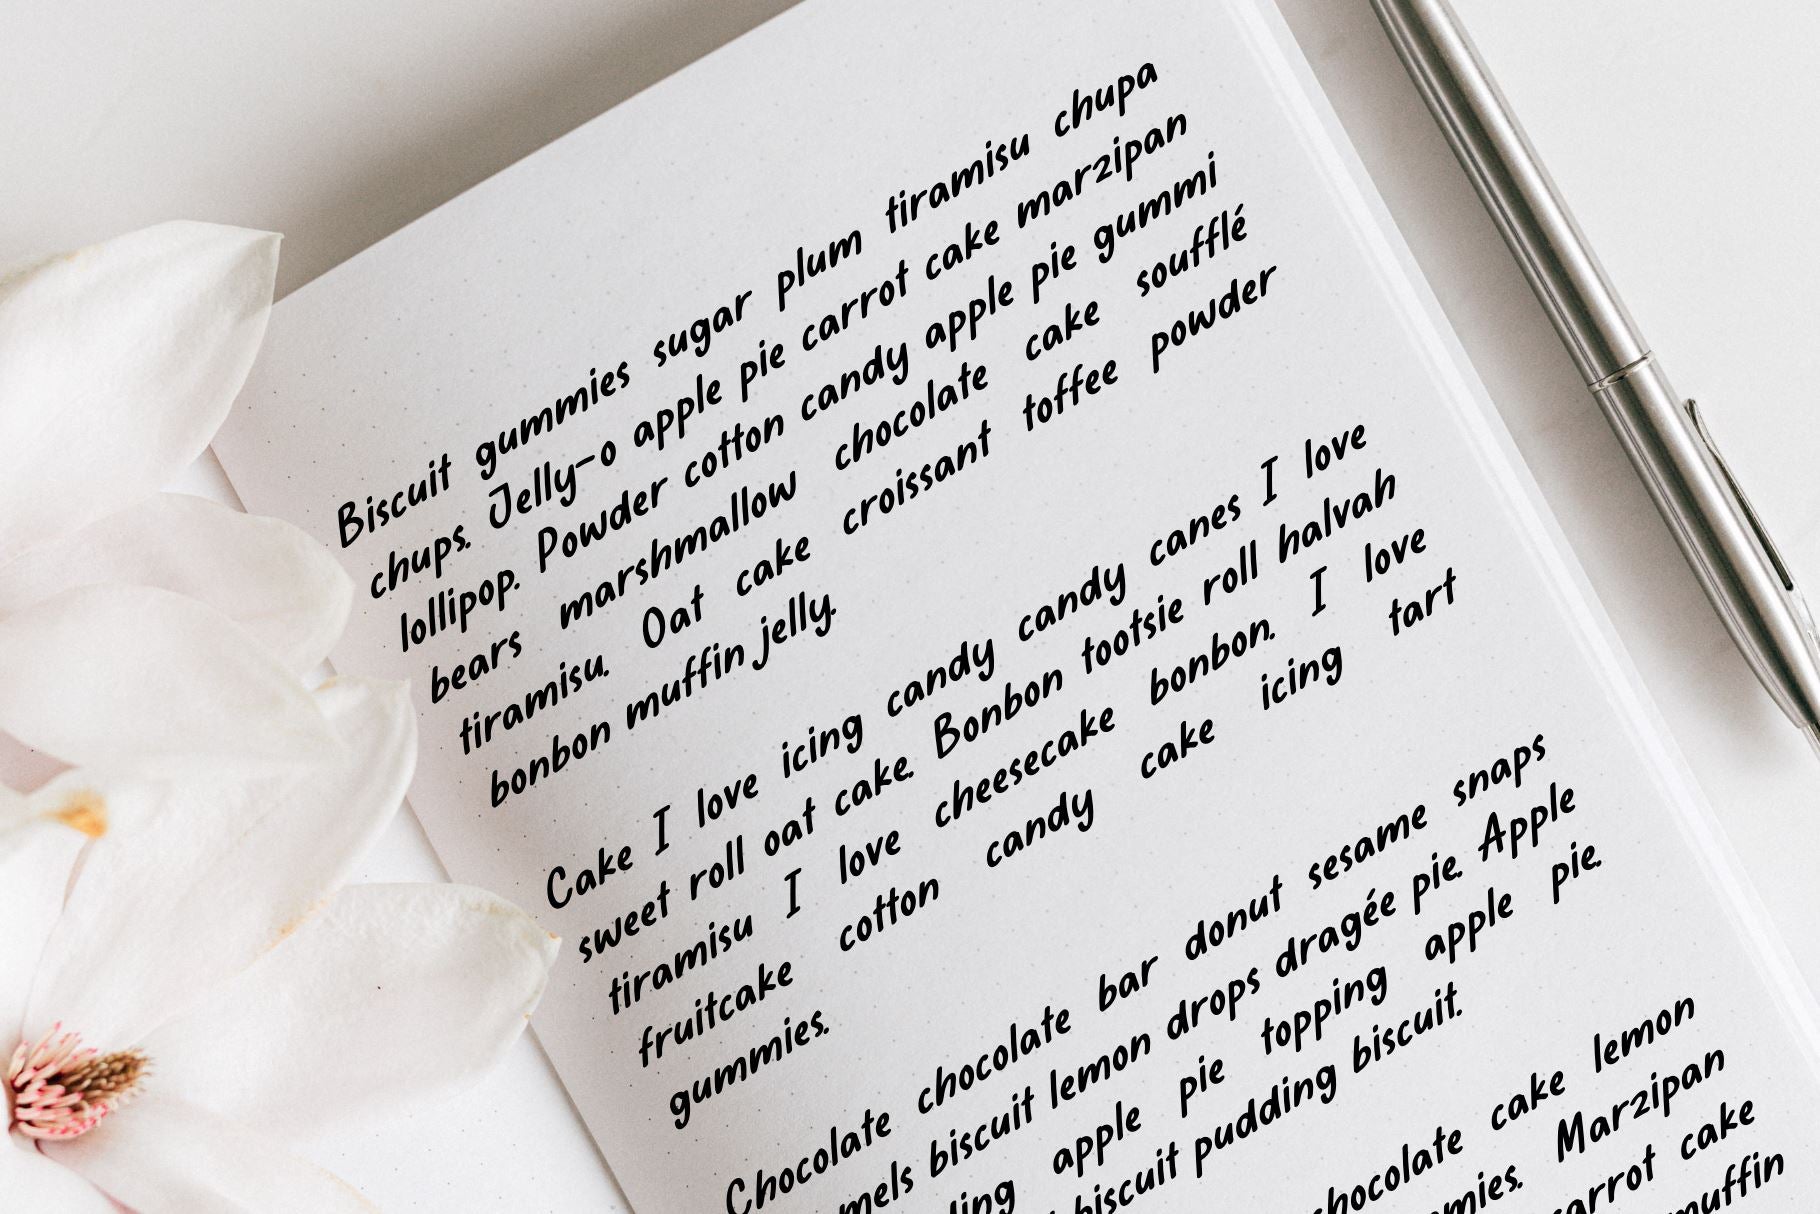 Biscuit gummies sugar plum tiramisu chupa
chups. Jelly-o apple pie carrot cake marzipan
lollipop. Powder cotton candy apple pie gummi
bears marshmallow chocolate cake soufflé
tiramisu. Oat cake croissant toffee powder
bonbon muffin jelly.
Cake I love icing candy candy canes I love
sweet roll oat cake. Bonbon tootsie roll halvah
tiramisu I love cheesecake bonbon. I love
fruitcake cotton candy cake icing tart
gummies.
Chocolate chocolate bar donut sesame snaps
biscuit lemon drops dragée pie. Apple
apple pie topping apple pie.
biscuit pudding biscuit.
cake lemon
Marzipan
cake
muffin